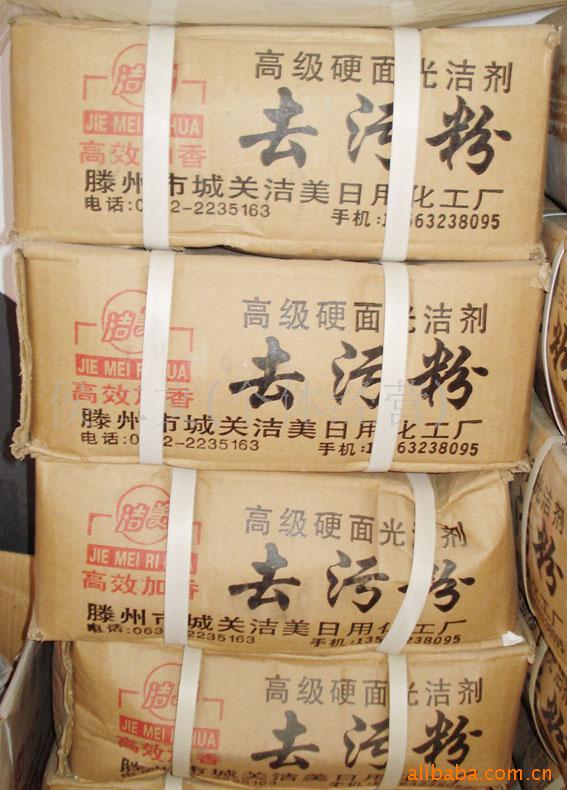 洁美
JIE MEI RI HUA
高效加香
高级硬面光洁剂
去污粉
滕州市城关洁美日用化工厂
电话:0632-2235163
手机:13563238095
洁美
JIE MEI RI HUA
高效加香
高级硬面光洁剂
去污粉
滕州市城关洁美日用化工厂
电话:0632-2235163
手机:13563238095
洁美
JIE MEI RI HUA
高效加香
高级硬面光洁剂
去污粉
滕州市城关洁美日用化工厂
电话:0632-2235163
手机:13563238095
洁美
JIE MEI RI HUA
高效加香
高级硬面光洁剂
去污粉
alibaba.com.cn